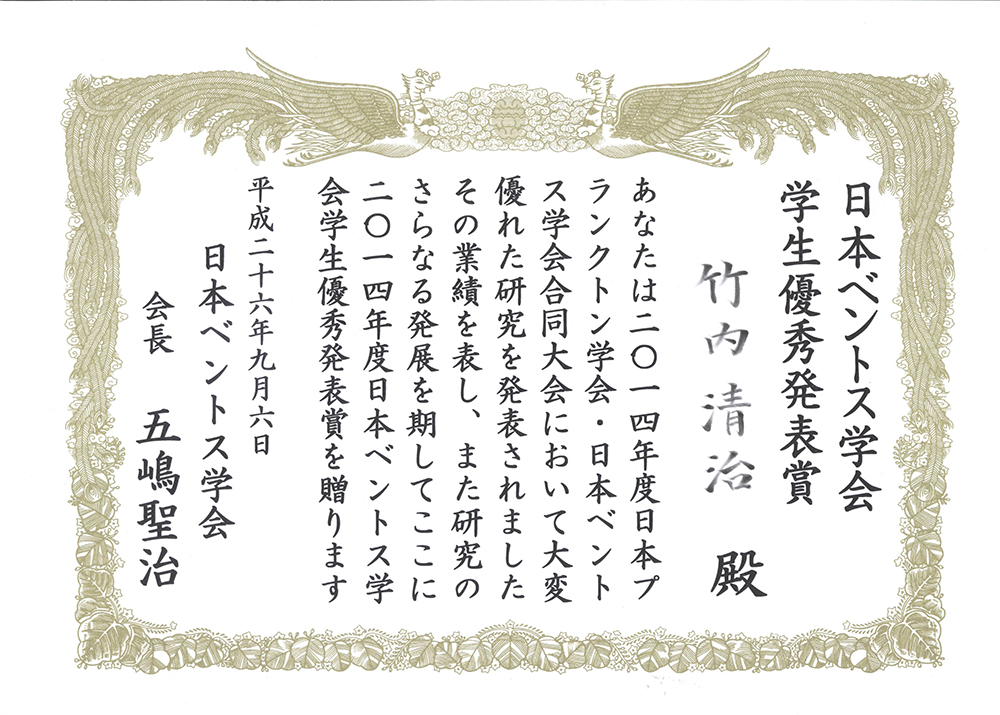 日本ベントス学会
学生優秀発表賞
竹内清治 殿
あなたは二〇一四年度日本プ
ランクトン学会・日本ベント
ス学会合同大会において大変
優れた研究を発表されました
その業績を表し、また研究の
さらなる発展を期してここに
二〇一四年度日本ベントス学
会学生優秀発表賞を贈ります
平成二十六年九月六日
日本ベントス学会
会長 五嶋聖治